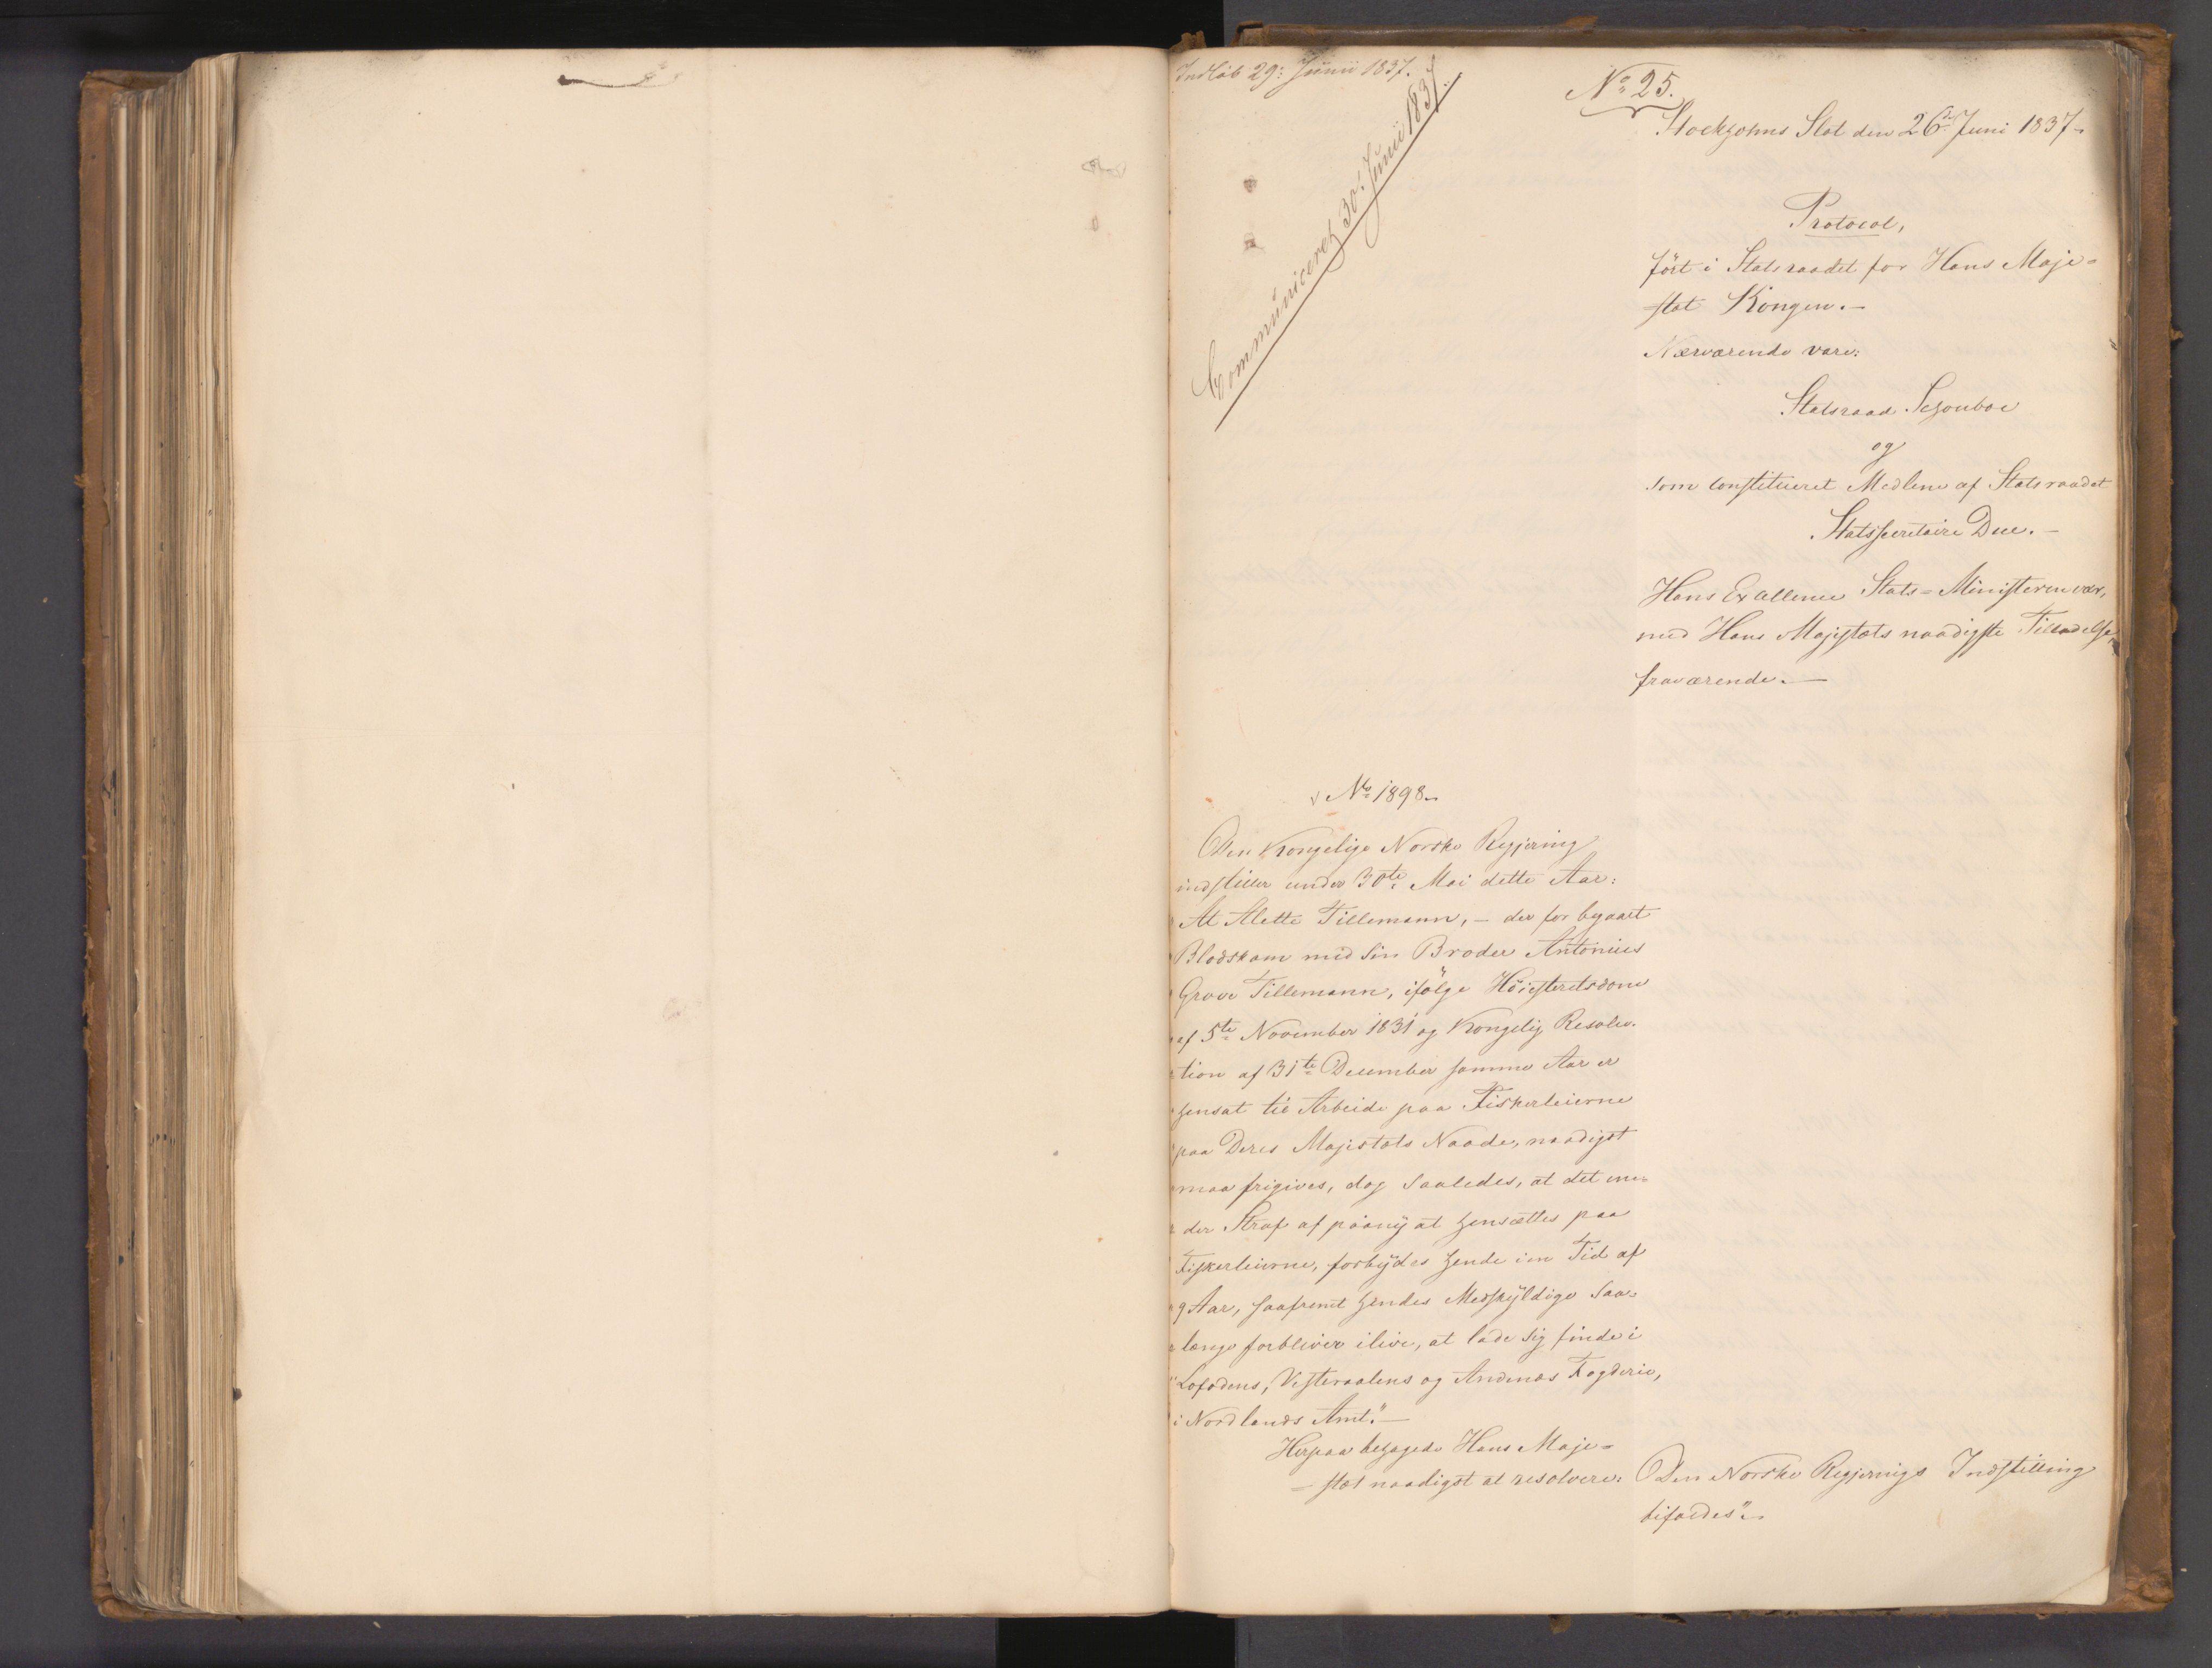 Indløb 29: Junii 1837.
Communiceret 30: Junii 1837.
No 25.
Stockholms Slot den 26de Juni 1837.
Protocol,
ført i Statsraadet for Hans Maje=
stæt Kongen.—
Nærværende vare:
Statsraad Schouboe
og
som constitueret Medlem af Statsraadet
Statssecretaire Due.—
Hans Excellence Stats=Ministeren var,
med Hans Majestæts naadigste Tilladelse,
fraværende.—
No 1898.
Den Kongelige Norske Regjering
indstiller under 30te Mai dette Aar:
"At Alette Tillemann, — der for begaaet
"Blodskam med sin Broder Antonius
"Grove Tillemann, ifølge Høiesteretsdom
"af 5te November 1831 og Kongelig Resolu-
"tion af 31te December samme Aar er
"hensat til Arbeide paa Fiskerleierne
"paa Deres Majestæts Naade, naadigst
"maa frigives, dog saaledes, at det un=
"der Straf af paany at hensættes paa
"Fiskerleierne, forbydes hende i en Tid af
"9 Aar, saafremt hendes Medskyldige saa=
"længe forbliver ilive, at lade sig finde i
"Lofodens, Vesteraalens og Andenæs Fogderie,
"i Nordlands Amt."—
Herpaa behagede Hans Maje=
=stæt naadigst at resolvere:
Den Norske Regjerings Indstilling
bifaldes".